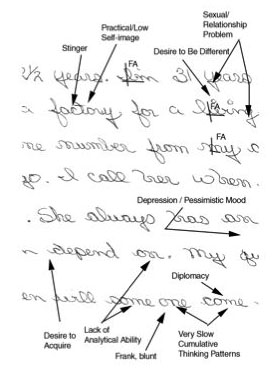 Sexual/
Relationship
Problem
Practical/Low
Self-image
Stinger
Desire to Be Different
FA
2½ years. I'm 31 years
FA
a factory for a living
FA
me number from pay
go. I call her when.
Depression / Pessimistic Mood
. She always has an
n depend on. My
Diplomacy
en will some one come
Desire to
Acquire
Lack of
Analytical Ability
Frank, blunt
Very Slow
Cumulative
Thinking Patterns